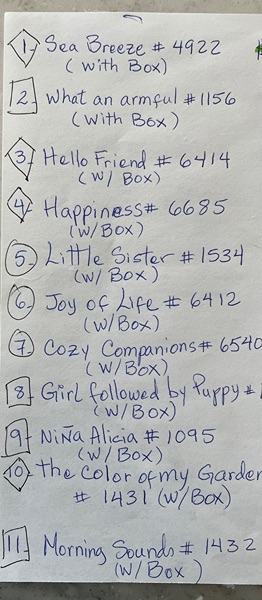 1. Sea Breeze # 4922
(with Box)
2. What an armful #1156
(with Box)
3. Hello Friend # 6414
(w/ Box)
4. Happiness # 6685
(w/Box)
5. Little Sister # 1534
(w/Box)
6. Joy of Life # 6412
(w/Box)
7. Cozy Companions # 6540
(w/Box)
8. Girl followed by Puppy #
(w/Box)
9. Niña Alicia # 1095
(w/Box)
10. the Color of my Garden
# 1431 (w/Box)
11. Morning Sounds # 1432
(w/Box)